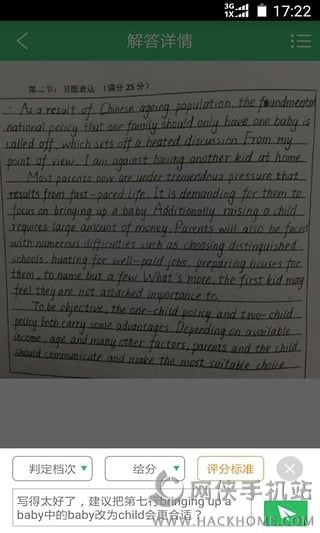 3G 1X 17:22
解答详情
第二节：书面表达 （满分 25 分）
As a result of Chinese ageing population, the foundmental
national policy that one family should only have one baby is
called off, which sets off a heated discussion. From my
point of view, I am against having another kid at home.
Most parents now are under tremendous pressure that
results from fast-paced life. It is demanding for them to
focus on bringing up a baby. Additionally, raising a child
requires large amount of money. Parents will also be faced
with numerous difficulties such as choosing distinguished
schools, hunting for well-paid jobs, preparing houses for
them, to name but a few. What's more, the first kid may
feel they are not attached importance to.
To be objective, the one-child policy and two-child
policy both carry some advantages. Depending on available
income, age and many other factors, parents and the child
should communicate and make the most suitable choice.
判定档次 给分 评分标准
写得太好了，建议把第七行bringing up a
baby中的baby改为child会更合适？
网侠手机站
WWW.HACKHOME.COM